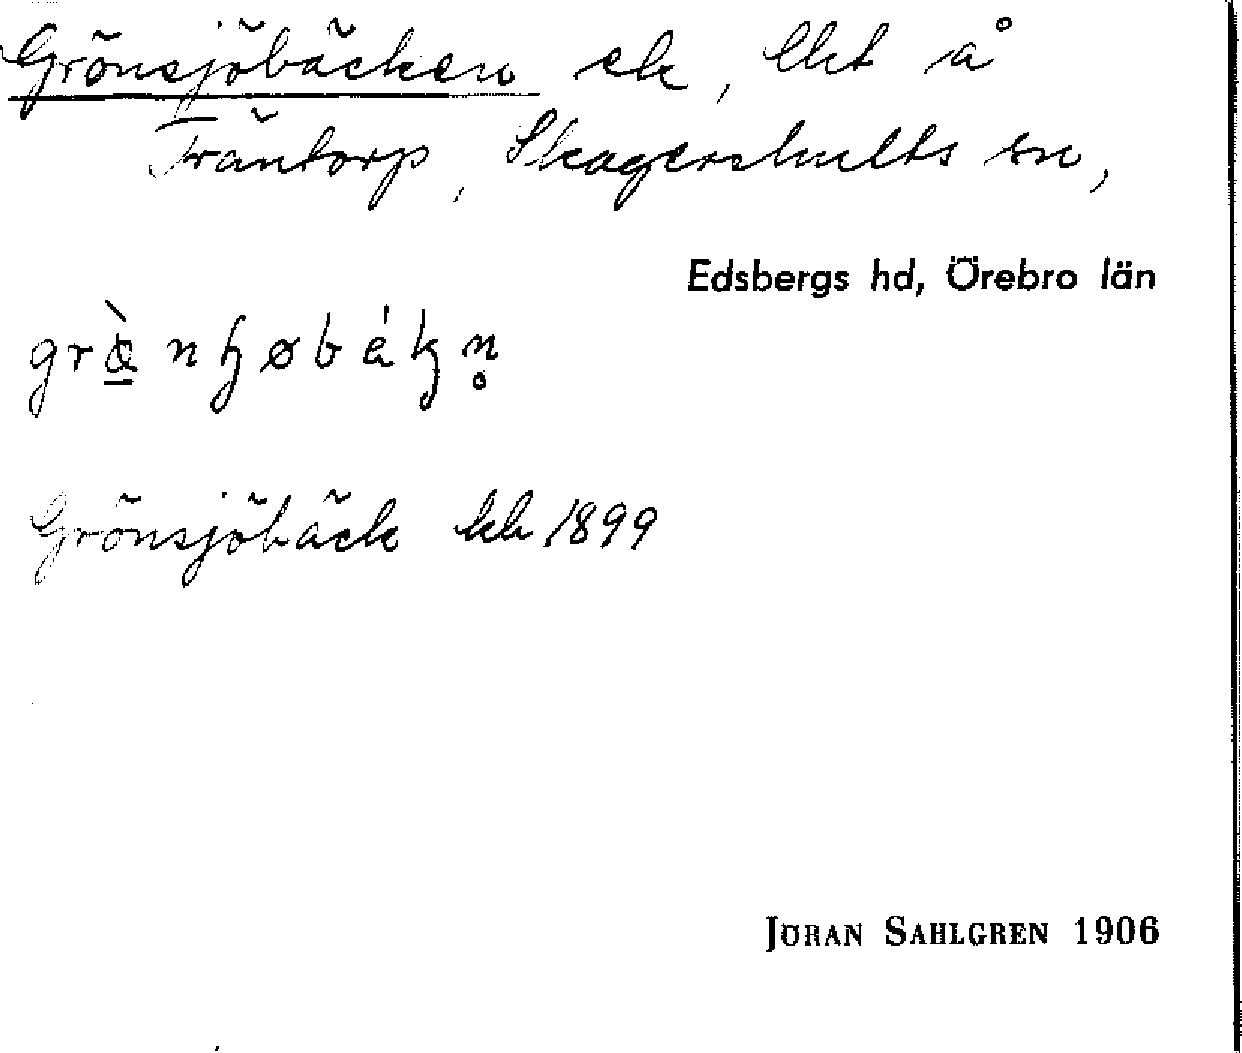 Grönsjöbäcken ek, lht å
Träntorp, Skagershults sn,
Edsbergs hd, Örebro län
Grönsjöbäck kb 1899
JÖRAN SAHLGREN 1906